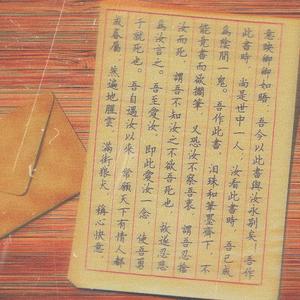 意映卿卿如晤，吾今以此書與汝永別矣，吾作
此書時，尚是世中一人，汝看此書時，吾已成
為陰間一鬼。吾作此書，泪珠和筆墨齊下，不
能竟書而欲擱筆，又恐汝不察吾衷，謂吾忍捨
汝而死，謂吾不知汝之不欲吾死也，故遂忍悲
為汝言之。吾至愛汝，即此愛汝一念，使吾勇
于就死也。吾自遇汝以來，常願天下有情人都
成眷屬，然遍地腥雲，滿街狼犬，稱心快意，